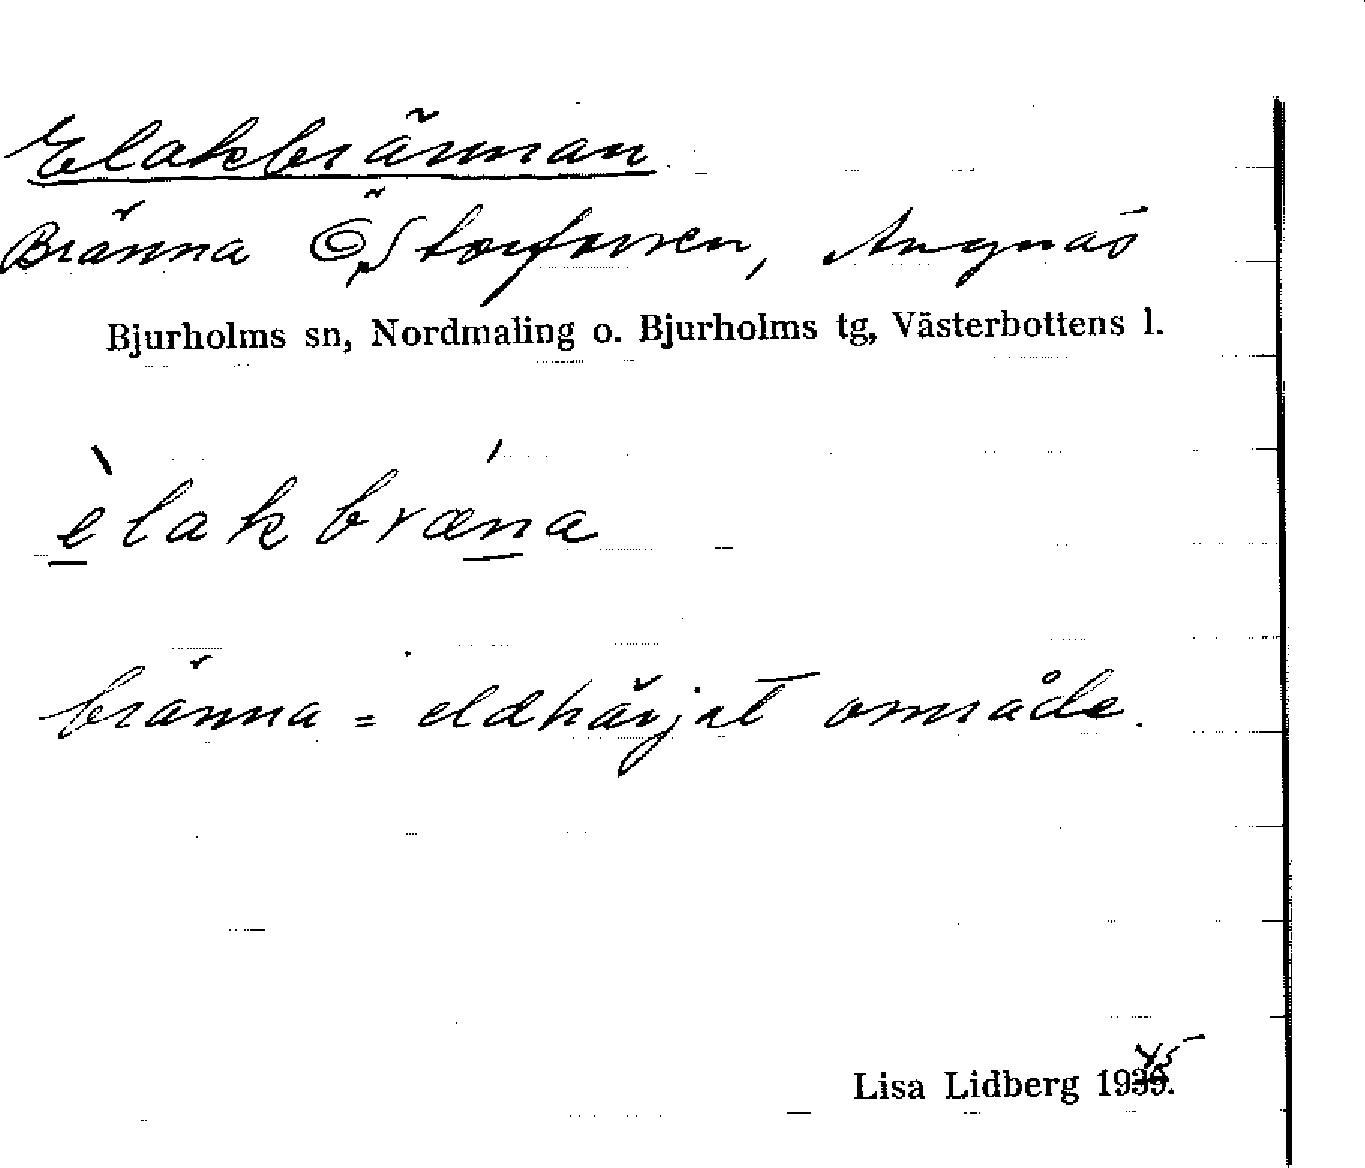 Elakbrännan
Bränna Ö Storforsen, Angnäs
Bjurholms sn, Nordmaling o. Bjurholms tg, Västerbottens l.
èlakbræ´na
bränna = eldhärjat område.
Lisa Lidberg 1945.